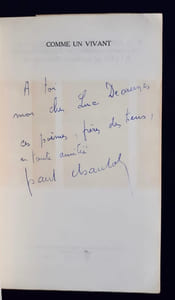 COMME UN VIVANT
A toi
mon cher Luc Decaunes
ces poèmes, frères des tiens,
en toute amitié
paul chaulot